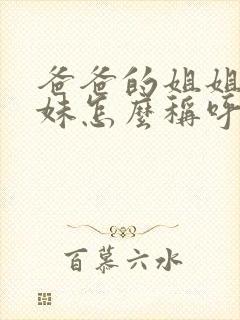 爸爸的姐姐
妹怎麼稱呼
百慕六水